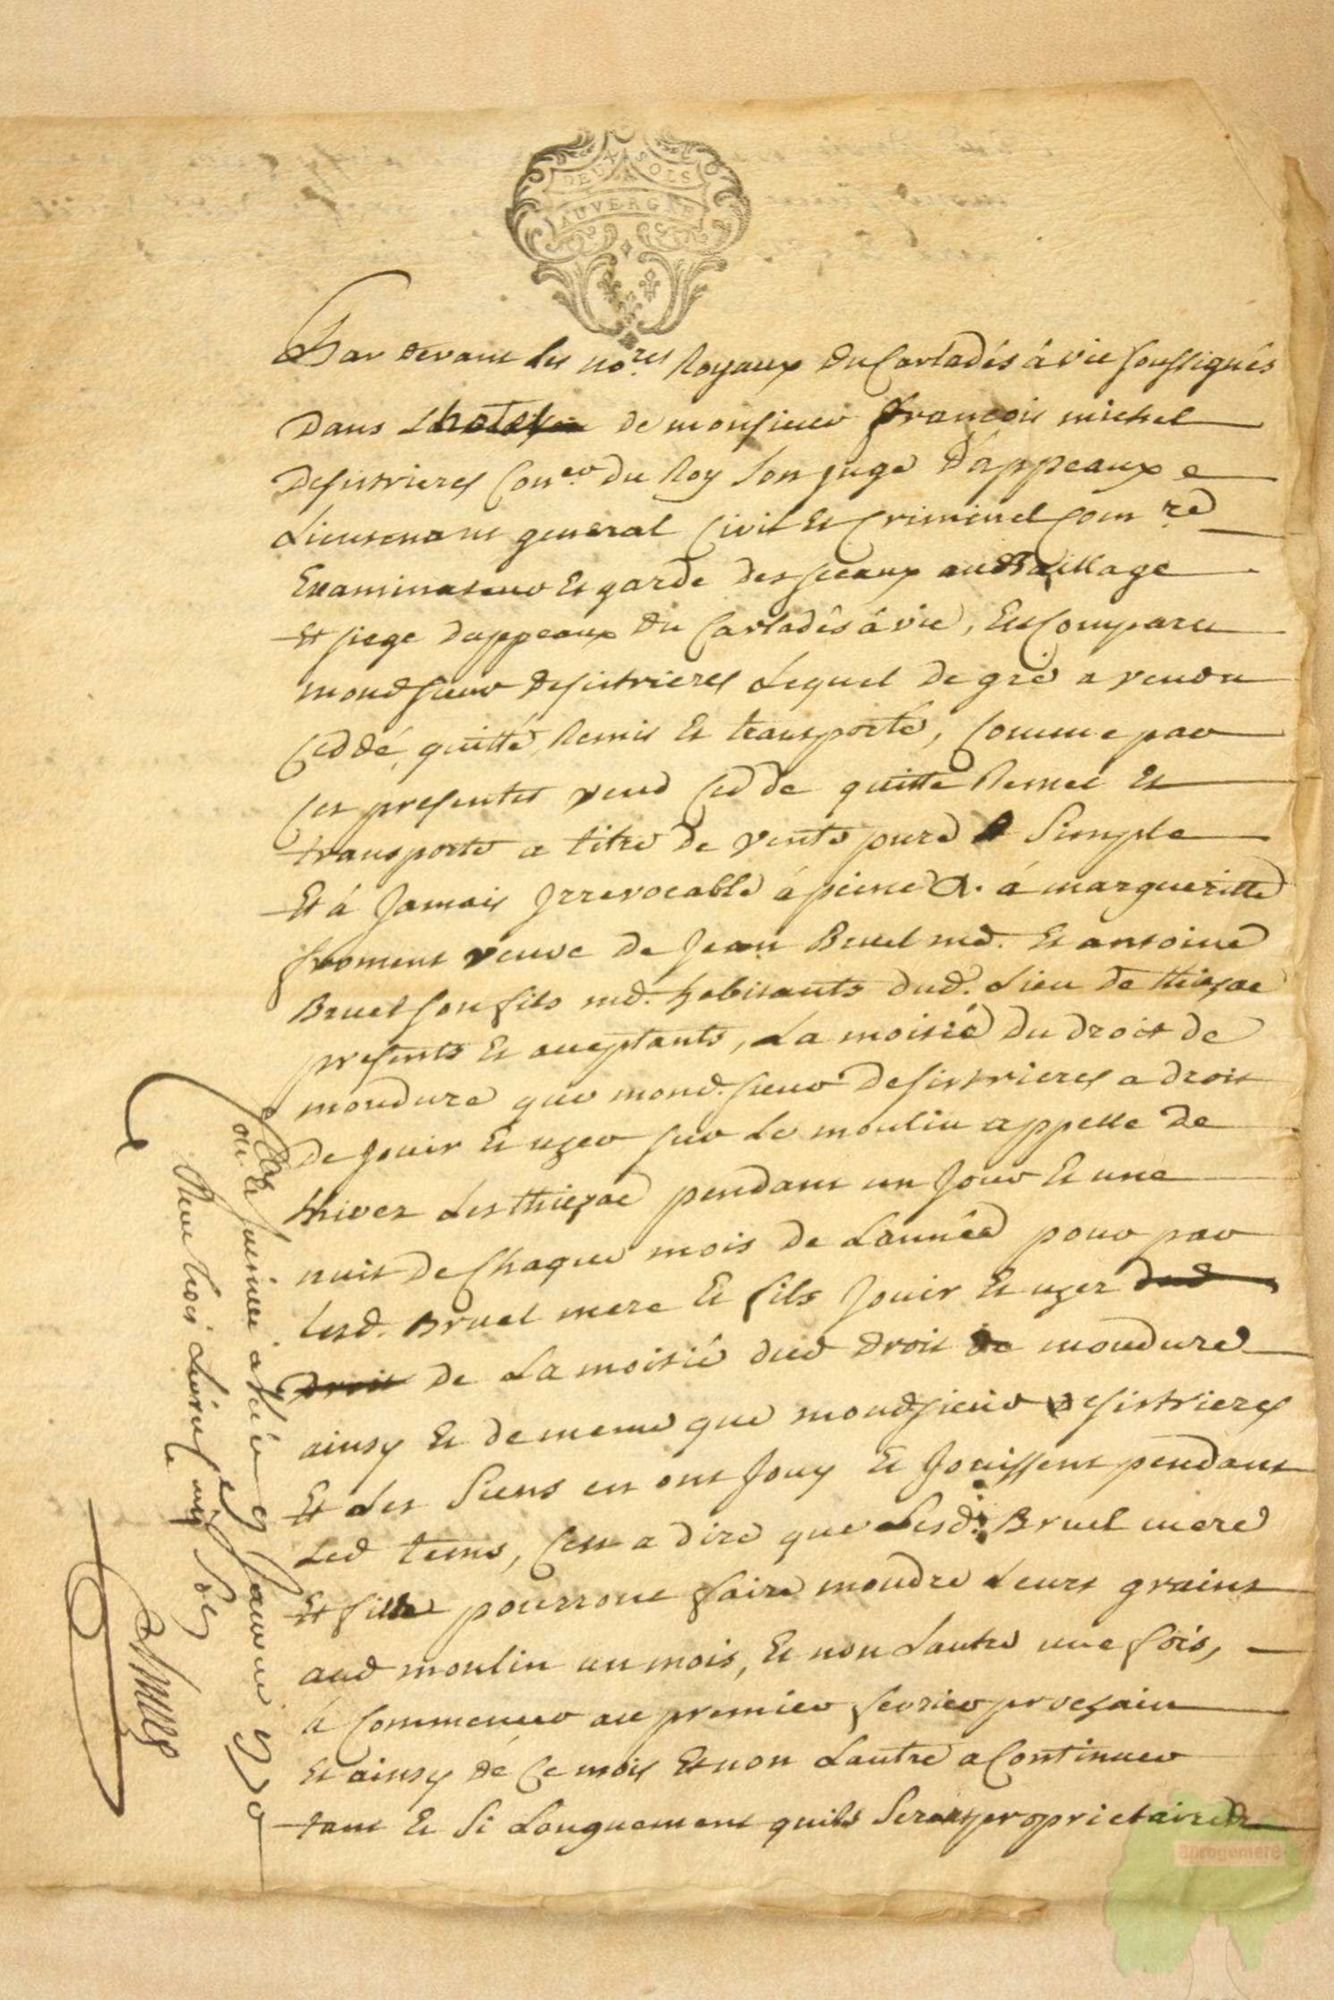 DEUX SOLS
AUVERGNE
Par devant les no.res Royaux du Carladés á vic soussignés
Dans Lhotel de monsieur françois michel
Desistrieres Con.er du Roy son juge D'appeaux e
Lieutenant general Civil et Criminel Com.re
Examinateur et garde des sceaux au Bailliage
et siege dappeaux du Carladês á vic, est Comparu
mond sieur desistrieres Lequel de gré a vendu
Ceddé, quitté, Remis et transporté, Comme par
Ces presentes vend Cedde quitte Remet et
transporte a titre de vente pure & Simple
et á Jamais Jrrevocable á peine &. á margueritte
froment veuve de Jean Bruel md. et antoine
Bruel son fils md. habitants dud. Lieu de thiezac
presents et aceptants, La moitié du droit de
moudure que mond. sieur desistrieres a droit
de Jouir et uzer sur Le moulin appelle de
pendant un Jour et une
nuit de Chaque mois de Lannée pour par
Lesd. Bruel mere et fils Jouir et uzer dud
droit de La moitié dud droit de moudure
ainsy et de meme que mondsieur desistrieres
et Les Siens en ont Jouy et Jouissent pendant
Led tems, Cest a dire que Lesd. Bruel mere
et fils pourront faire moudre Leurs grains
aud moulin un mois, et non Lautre une fois,
á Commencer au premier fevrier prochain
et ainsy dé Ce mois et non Lautre a Continuer
tant et Si Longuement quils Seront proprietaires
ou
Reçu trois Livres six sols
aprogemere